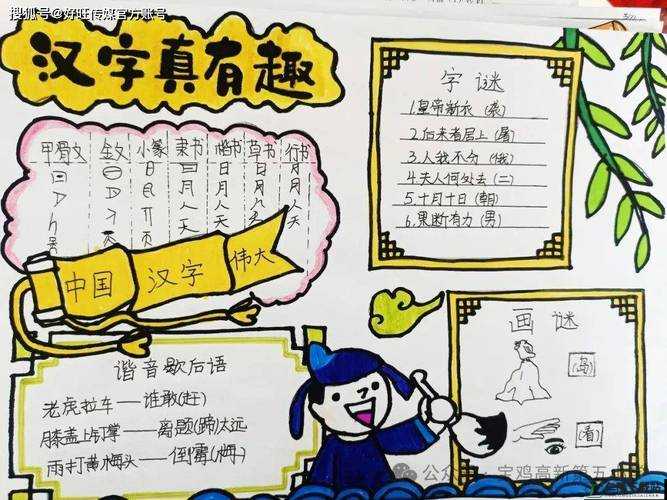 搜狐号@好旺传媒官方账号
汉字真有趣
甲骨文 金文 小篆 隶书 楷书 草书 行书
日 日 月
月 月 月
人 人 人
天 天 天
中国 汉字 伟大
字谜
1.皇帝新衣 (袭)
2.后来者居上
3.人我不分 (俄)
4.夫人何处去 (二)
5.十月十日 (朝)
6.果断有力 (男)
谐音歇后语
老虎拉车——谁敢(赶)
膝盖上钉掌——离题(蹄)太远
雨打黄梅头——倒霉(梅)
画谜
(岛)
(看)
公众号 · 宝鸡高新第五